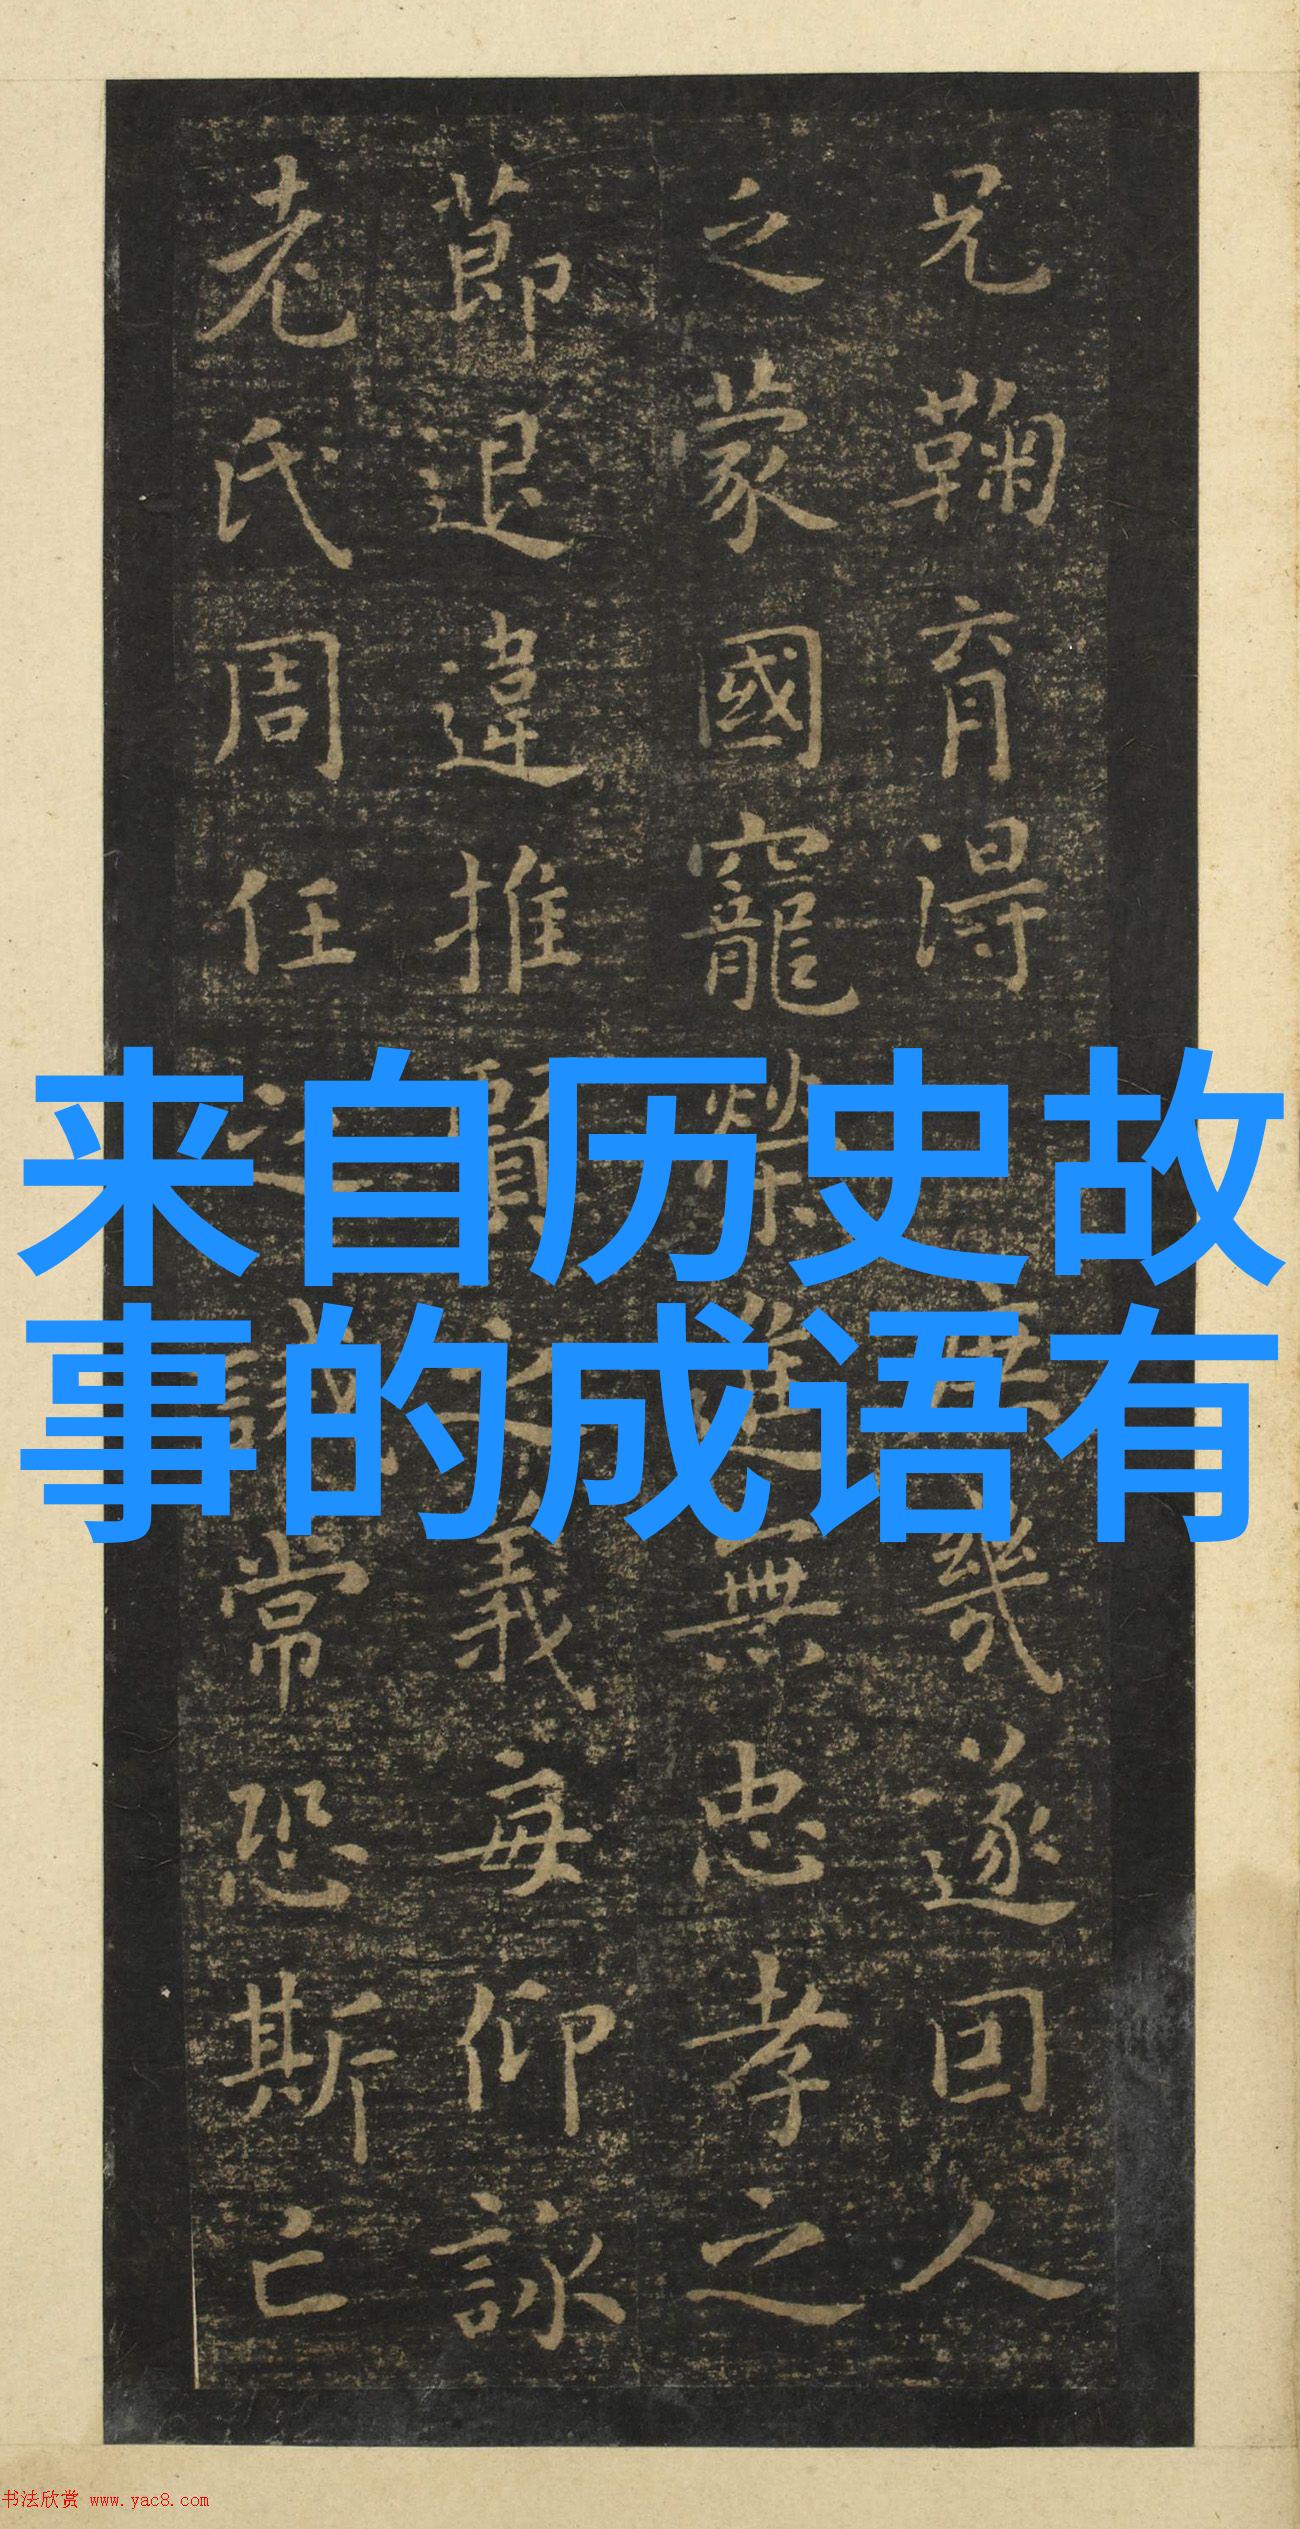 兄鞠育得庶幾遂因人
乏蒙國寵榮進無忠孝之
節退違推賢之義每仰詠
老氏周任之誡常恐斯亡
来自历史故
事的成语有
书法欣赏 www.yac8.com